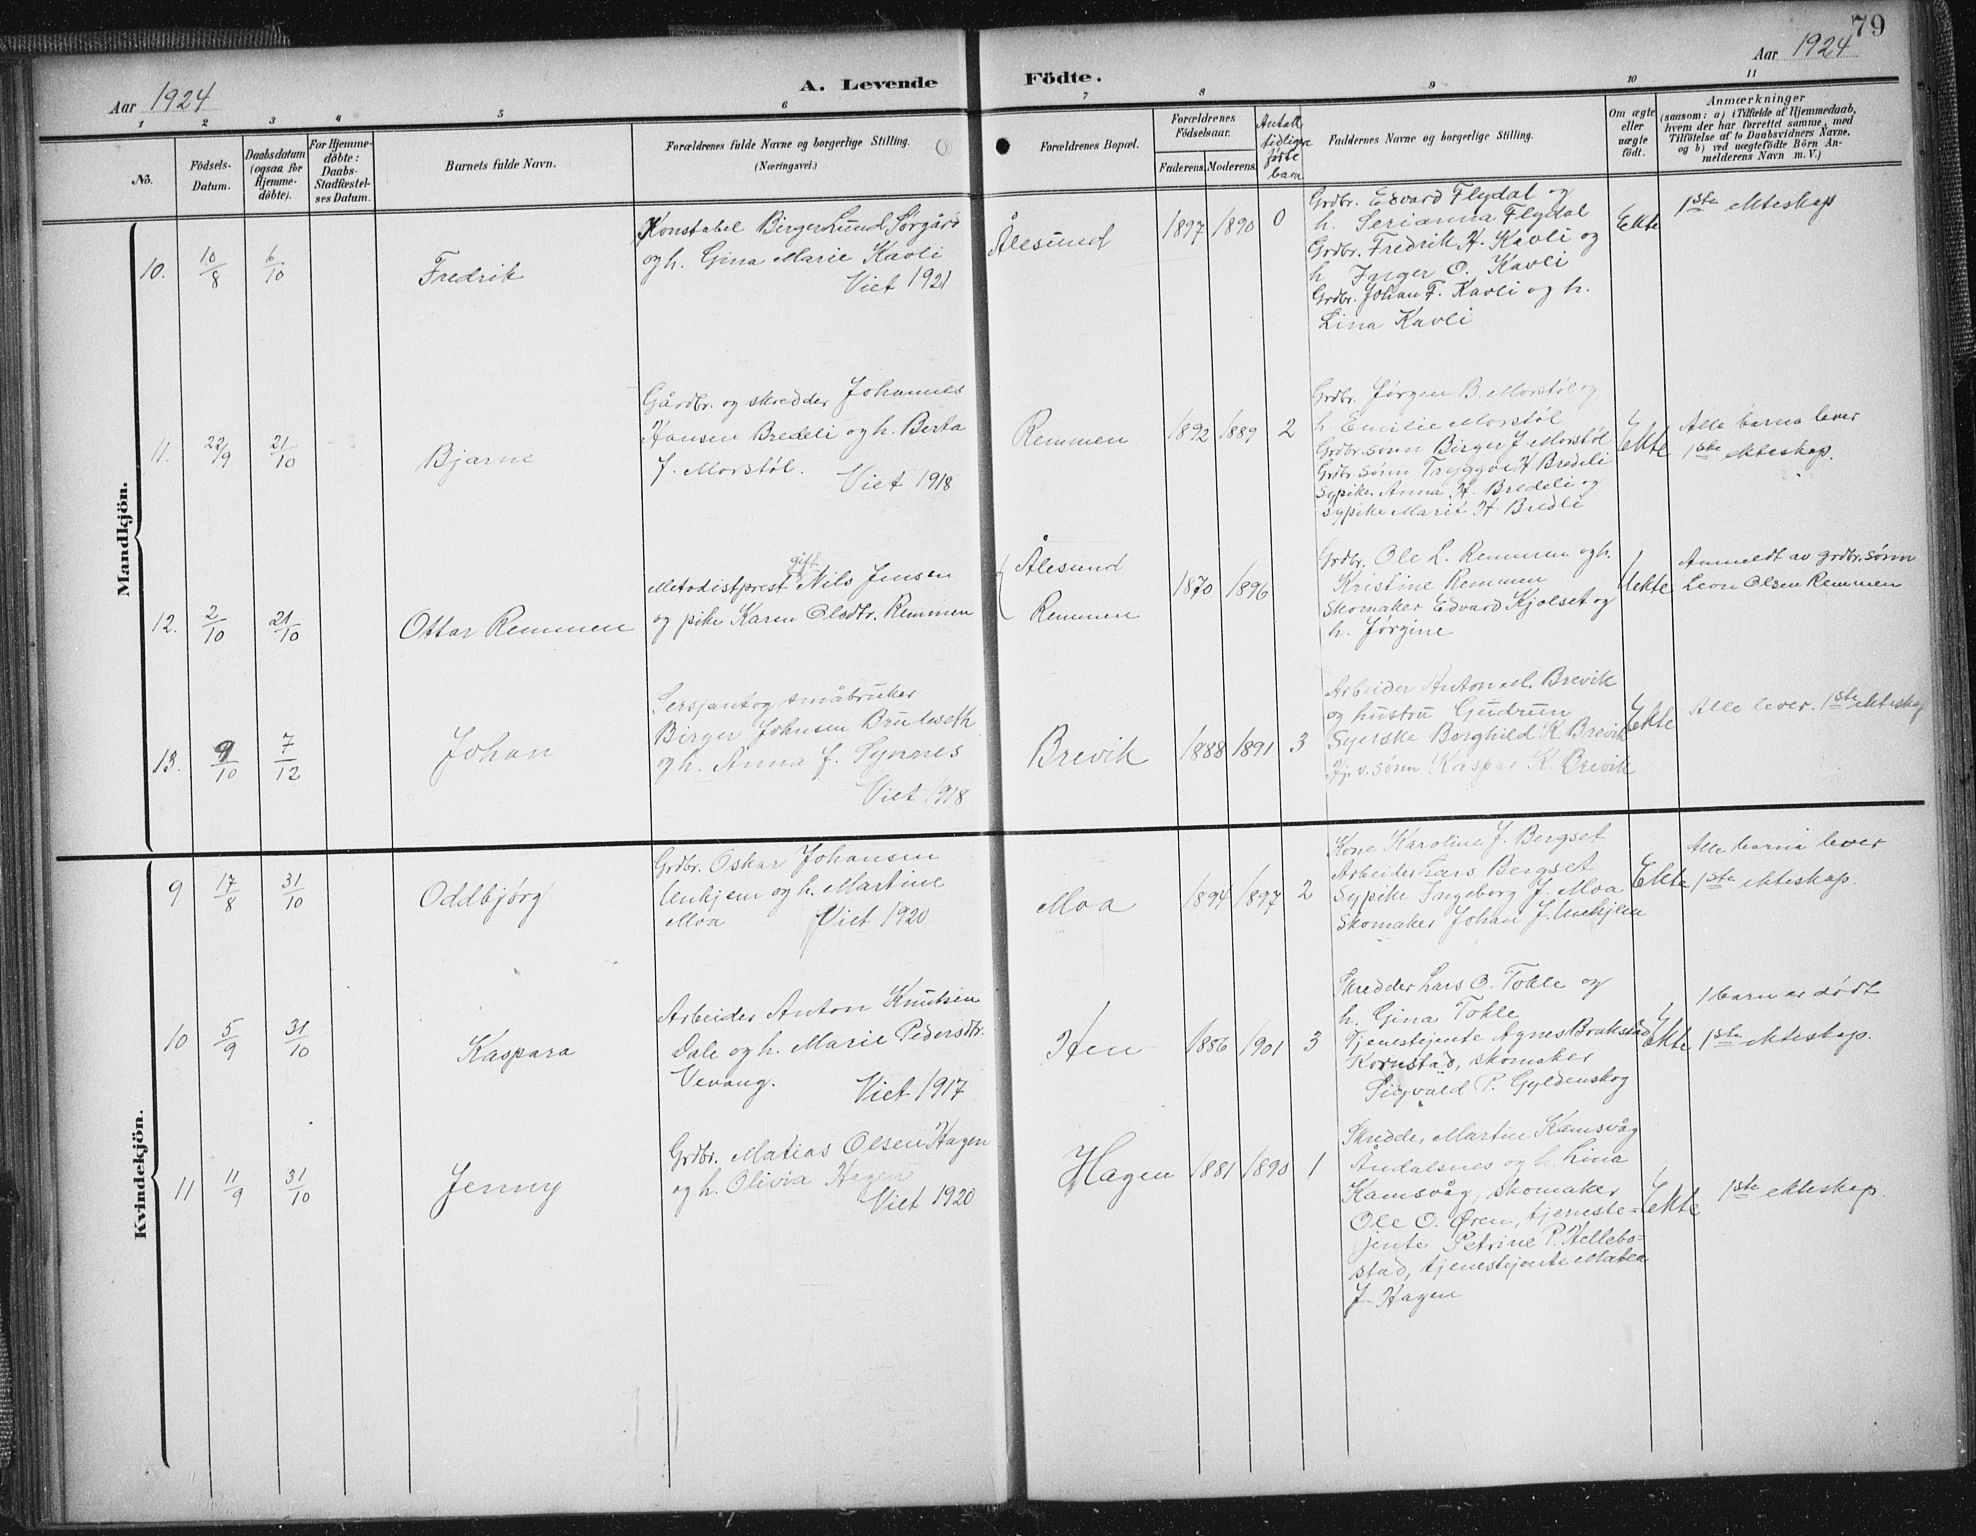 79
Aar 1924
A. Levende Födte.
Aar 1924
1 2 3 4 5 6 7 8 9 10 11
No.
Födsels-
Datum.
Daabsdatum
(ogsaa for
Hjemme-
döbte).
For Hjemme-
döbte:
Daabs-
Stadfæstel-
ses Datum.
Barnets fulde Navn.
Forældrenes fulde Navne og borgerlige Stilling.
(Næringsvei.)
Forældrenes Bopæl.
Forældrenes
Födselsaar.
Faderens. Moderens.
Antall
tidligere
fødte
barn
Faddernes Navne og borgerlige Stilling.
Om ægte
eller
uægte
födt.
Anmærkninger
(saasom: a) i Tilfælde af Hjemmedaab,
hvem der har forrettet samme, med
Tilföielse af to Daabsvidners Navne,
og b) ved uægtefödte Börn An-
melderens Navn m. V.)
Mandkjön.
10.
10/8
6/10
Fredrik
Konstabel Birger Lund Sørgård
og h. Gina Marie Kavli
Viet 1921
Ålesund
1897 1890 0
Grdbr. Edvard Flydal og
h. Serianna Flydal
Grdbr. Fredrik H. Kavli og
h Inger O. Kavli
Grdbr. Johan F. Kavli og h.
Lina Kavli
Ekte
1ste ekteskap
11.
22/9
21/10
Bjarne
Gårdbr. og skredder Johannes
Hansen Bredeli og h. Berta
J. Morstøl.
Viet 1918
Remmen
1892 1889 2
Grdbr. Jørgen B. Morstøl og
h. Emilie Morstøl
Grdbr. sønn Birger J. Morstøl
Grdbr. sønn Tryggve H. Bredeli
Sypike Anna H. Bredeli og
sypike Marit H. Bredli
Ekte
Alle barna lever
1ste ekteskap.
12.
2/10
21/10
Ottar Remmen
gift
Metodistprest Nils Jensen
og pike Karen Olsdtr. Remmen
Ålesund
Remmen
1870 1896
Grdbr. Ole L. Remmen og h.
Kristine Remmen
Skomaker Edvard Kjølset og
h. Jørgine
Uekte
Anmeldt av grdbr. sønn
Leon Olsen Remmen
13.
9/10
7/12
Johan
Sersjant og småbruker
Birger Johnsen Bruleseth
og h. Anna J. Synnes
Viet 1918
Brevik
1888 1891 3
Arbeider Anton M. Brevik
og hustru Gudrun
Syerske Borghild K. Brevik
Hj. v. sønn Kaspar K. Brevik
Ekte
Alle lever. 1ste ekteskap
Kvindekjön.
9
17/8
31/10
Oddbjørg
Grdbr. Oskar Johansen
Unhjem og h. Martine
Moa
Viet 1920
Moa
1894 1897 2
Kone Karoline J. Bergset
Arbeider Lars Bergset
Sypike Ingeborg J. Moa
Skomaker Johan J. Unhjem
Ekte
Alle barna lever
1ste ekteskap.
10
5/9
31/10
Kaspara
Arbeider Anton Knutsen
Dale og h. Marie Pedersdtr.
Vevang.
Viet 1917
Hen
1886 1901 3
Skredder Lars O. Tokle og
h. Gina Tokle
Tjenestejente Agnes Brakstad
Kornstad, skomaker
Sigvald P. Gyldenskog
Ekte
1 barn er dødt
1ste ekteskap.
11
11/9
31/10
Jenny
Grdbr. Matias Olsen Hagen
og h. Olivia Hagen
Viet 1920
Hagen
1881 1890 1
Skredder Martin Kamsvåg
Åndalsnes og h. Lina
Kamsvåg, skomaker
Ole O. Øren, tjeneste-
jente Petrine P. Hellebo-
stad, tjenestejente
J. Hagen
Ekte
1ste ekteskap.